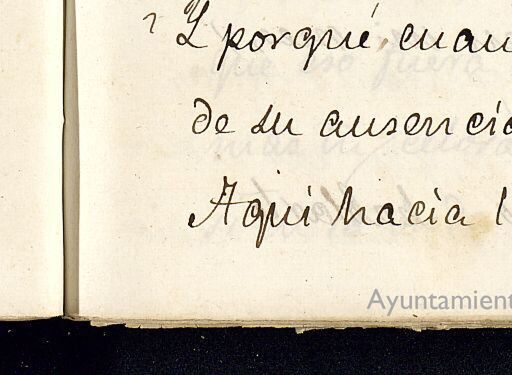 ? Y porqué, cuan
de su ausencia
Aqui hacia l
Ayuntamient